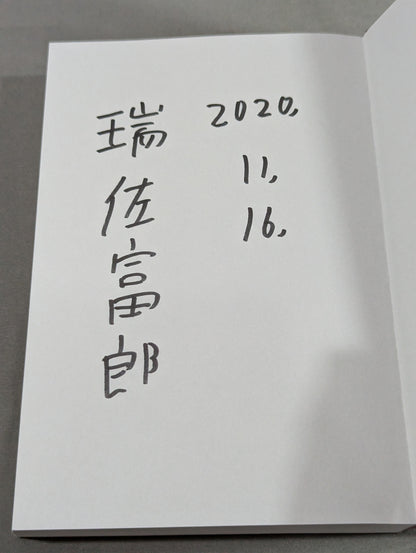 2020.
11.
16.
瑞佐富郎